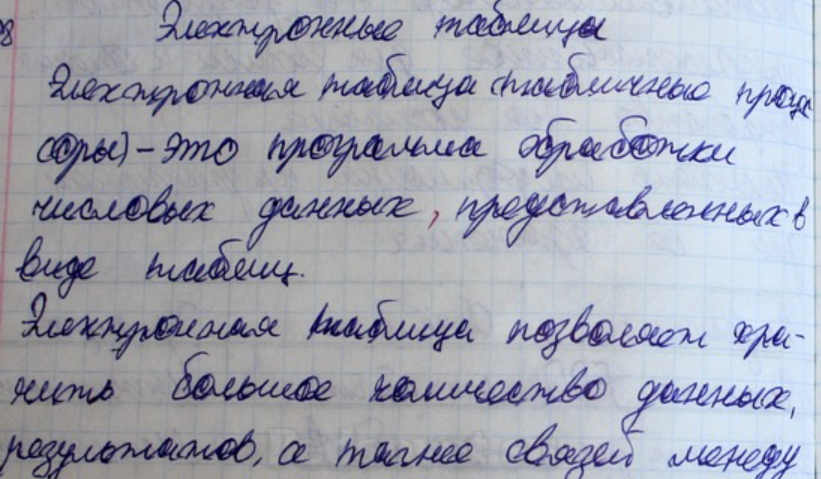 Электронные таблицы
Электронная таблица (табличные процес
соры) – это программа обработки
числовых данных, представленных в
виде таблиц.
Электронная таблица позволяет хра-
нить большое количество данных,
результатов, а также связей между